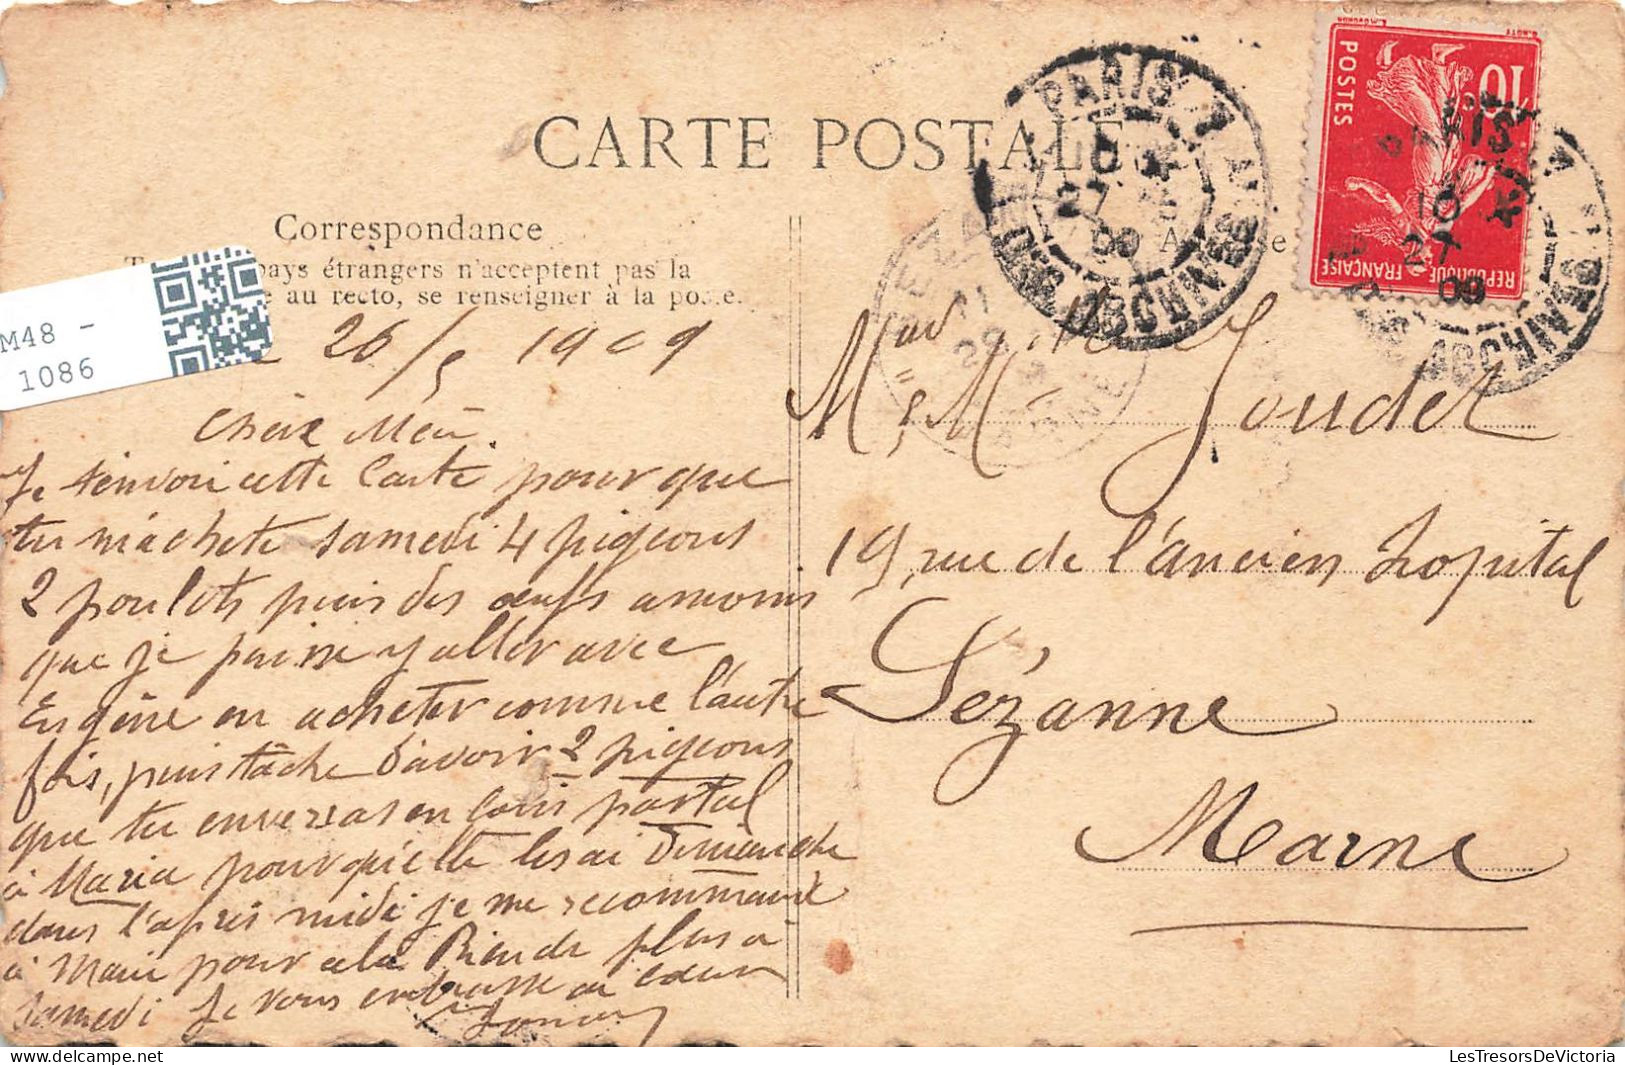 CARTE POSTALE
Correspondance
pays étrangers n'acceptent pas la
au recto, se renseigner à la poste.
M48 -
1086
26/5 1909
Chère Mèr.
Je t'envoie cette Carte pour que
tu m'achete samedi 4 pigeons
2 poulets puis des œufs amoins
que je puisse y aller avec
Eugène en acheter comme l'autre
fois, puis tâche d'avoir 2 pigeons
que tu enverras en Coris postal
à Maria pour qu'elle les ai Dimanche
dans l'après midi je me recommande
à Marie pour cela Rien de plus a
Samedi Je vous embrasse
POSTES
10
REPUBLIQUE FRANÇAISE
PARIS
10
27
09
PARIS
27
09
SEZANNE
11
MARNE
Joudet
19, rue de l'ancien hopital
Sézanne
Marne
LesTresorsDeVictoria